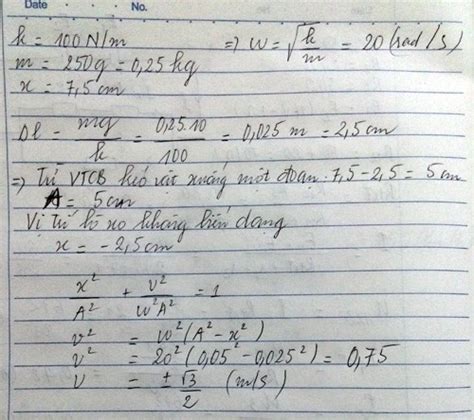 Date . . . No.
k = 100 N/m => W = √(k/m) = 20 (rad/s)
m = 250g = 0,25 kg
x = 7,5 cm
Δl = mg/k = 0,25.10/100 = 0,025 m = 2,5 cm
=> Từ VTCB kéo vật xuống một đoạn: 7,5 - 2,5 = 5 cm
A = 5cm
Vị trí lò xo không biến dạng
x = -2,5 cm
x²/A² + v²/W²A² = 1
v² = W²(A² - x²)
v² = 20²(0,05² - 0,025²) = 0,75
v = ± √3/2 (m/s)